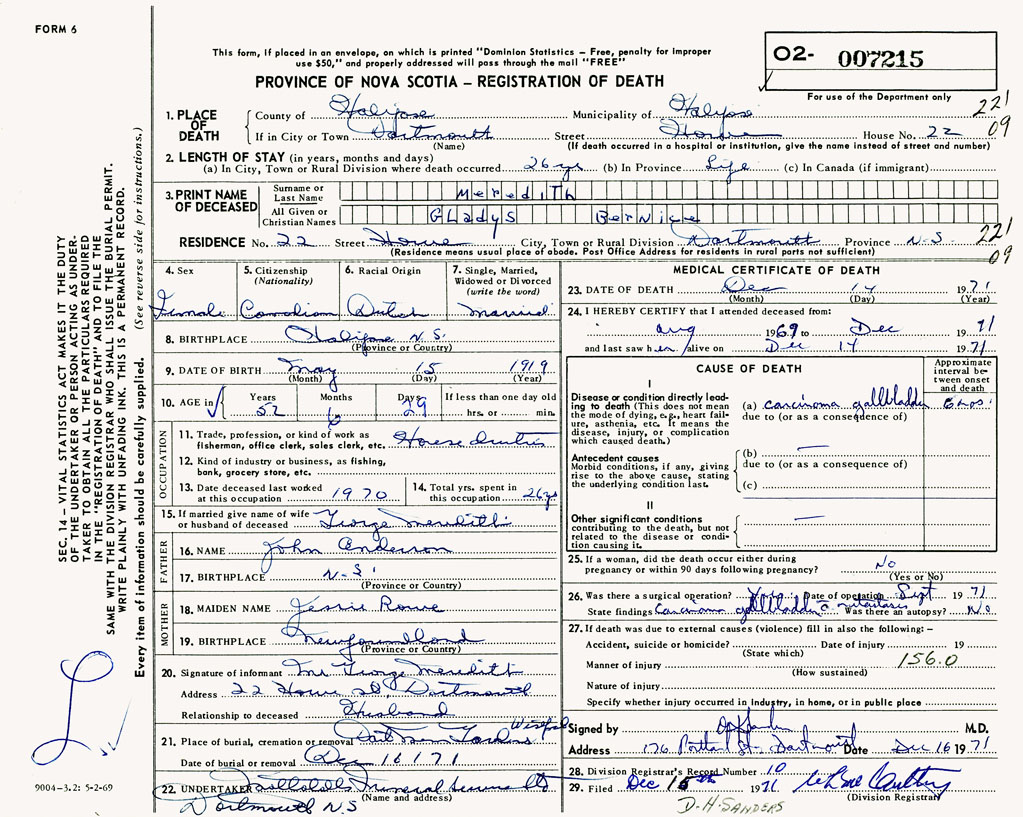 FORM 6
This form, if placed in an envelope, on which is printed "Dominion Statistics — Free, penalty for improper
use $50," and properly addressed will pass through the mail "FREE"
O2- 007215
For use of the Department only
PROVINCE OF NOVA SCOTIA — REGISTRATION OF DEATH
221
09
1. PLACE OF DEATH
County of Halifax Municipality of Halifax
If in City or Town Dartmouth Street House No. 22
(Name) (If death occurred in a hospital or institution, give the name instead of street and number)
2. LENGTH OF STAY (in years, months and days)
(a) In City, Town or Rural Division where death occurred 26 yrs (b) In Province Life (c) In Canada (if immigrant)
3. PRINT NAME OF DECEASED
Surname or Last Name Meredith
All Given or Christian Names Gladys Bernice
RESIDENCE No. 22 Street City, Town or Rural Division Dartmouth Province N.S.
(Residence means usual place of abode. Post Office Address for residents in rural parts not sufficient)
221
09
4. Sex Female
5. Citizenship (Nationality) Canadian
6. Racial Origin Dutch
7. Single, Married, Widowed or Divorced (write the word) Married
8. BIRTHPLACE Halifax N.S.
(Province or Country)
9. DATE OF BIRTH May 15 1919
(Month) (Day) (Year)
10. AGE in Years 52 Months 6 Days 29 If less than one day old hrs. or min.
OCCUPATION
11. Trade, profession, or kind of work as
fisherman, office clerk, sales clerk, etc.
12. Kind of industry or business, as fishing,
bank, grocery store, etc.
13. Date deceased last worked
at this occupation 1970
14. Total yrs. spent in
this occupation 26 yrs
15. If married give name of wife
or husband of deceased George Meredith
FATHER
16. NAME John Anderson
17. BIRTHPLACE N.S.
(Province or Country)
MOTHER
18. MAIDEN NAME Jessie Rowe
19. BIRTHPLACE Newfoundland
(Province or Country)
20. Signature of informant Mr George Meredith
Address 22 St, Dartmouth
Relationship to deceased Husband
21. Place of burial, cremation or removal
Date of burial or removal Dec 16/71
22. UNDERTAKER Funeral
(Name and address)
Dartmouth N.S
MEDICAL CERTIFICATE OF DEATH
23. DATE OF DEATH Dec 14 1971
(Month) (Day) (Year)
24. I HEREBY CERTIFY that I attended deceased from:
Aug 1969 to Dec 1971
and last saw her alive on Dec 14 1971
CAUSE OF DEATH
Approximate interval between onset and death
I
Disease or condition directly leading
to death (This does not mean
the mode of dying, e.g., heart failure,
asthenia, etc. It means the
disease, injury, or complication
which caused death.)
(a) carcinoma gallbladder 6 mos
due to (or as a consequence of)
Antecedent causes
Morbid conditions, if any, giving
rise to the above cause, stating
the underlying condition last.
(b) —
due to (or as a consequence of)
(c)
II
Other significant conditions
contributing to the death, but not
related to the disease or condition
causing it.
—
25. If a woman, did the death occur either during
pregnancy or within 90 days following pregnancy? No
(Yes or No)
26. Was there a surgical operation? Date of operation Sept 1971
State findings Carcinoma gallbladder Was there an autopsy? No
27. If death was due to external causes (violence) fill in also the following:—
Accident, suicide or homicide? Date of injury 19
(State which)
Manner of injury 156.0
(How sustained)
Nature of injury
Specify whether injury occurred in industry, in home, or in public place
Signed by M.D.
Address 176 Portland St - Dartmouth Date Dec 16 1971
28. Division Registrar's Record Number 10
29. Filed Dec 1971
(Division Registrar)
D. H. SANDERS
SEC. 14 — VITAL STATISTICS ACT MAKES IT THE DUTY
OF THE UNDERTAKER OR PERSON ACTING AS UNDERTAKER
TO OBTAIN ALL THE PARTICULARS REQUIRED
IN THE "REGISTRATION OF DEATH" AND TO FILE THE
SAME WITH THE DIVISION REGISTRAR WHO SHALL ISSUE THE BURIAL PERMIT.
WRITE PLAINLY WITH UNFADING INK. THIS IS A PERMANENT RECORD.
Every item of information should be carefully supplied. (See reverse side for instructions.)
9004-3.2: 5-2-69